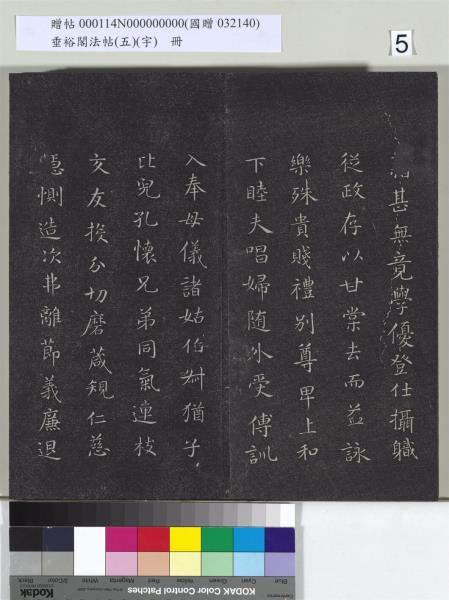 贈帖 000114N000000000(國贈 032140)
垂裕閣法帖(五)(宇) 冊
5
甚無竟學優登仕攝職
從政存以甘棠去而益詠
樂殊貴賤禮別尊卑上和
下睦夫唱婦随外受傅訓
入奉母儀諸姑伯叔猶子
比兒孔懷兄弟同氣連枝
交友投分切磨箴規仁慈
隱惻造次弗離節義廉退
Blue Cyan Green Yellow Red Magenta White 3/Color Black
Kodak
KODAK Color Control Patches